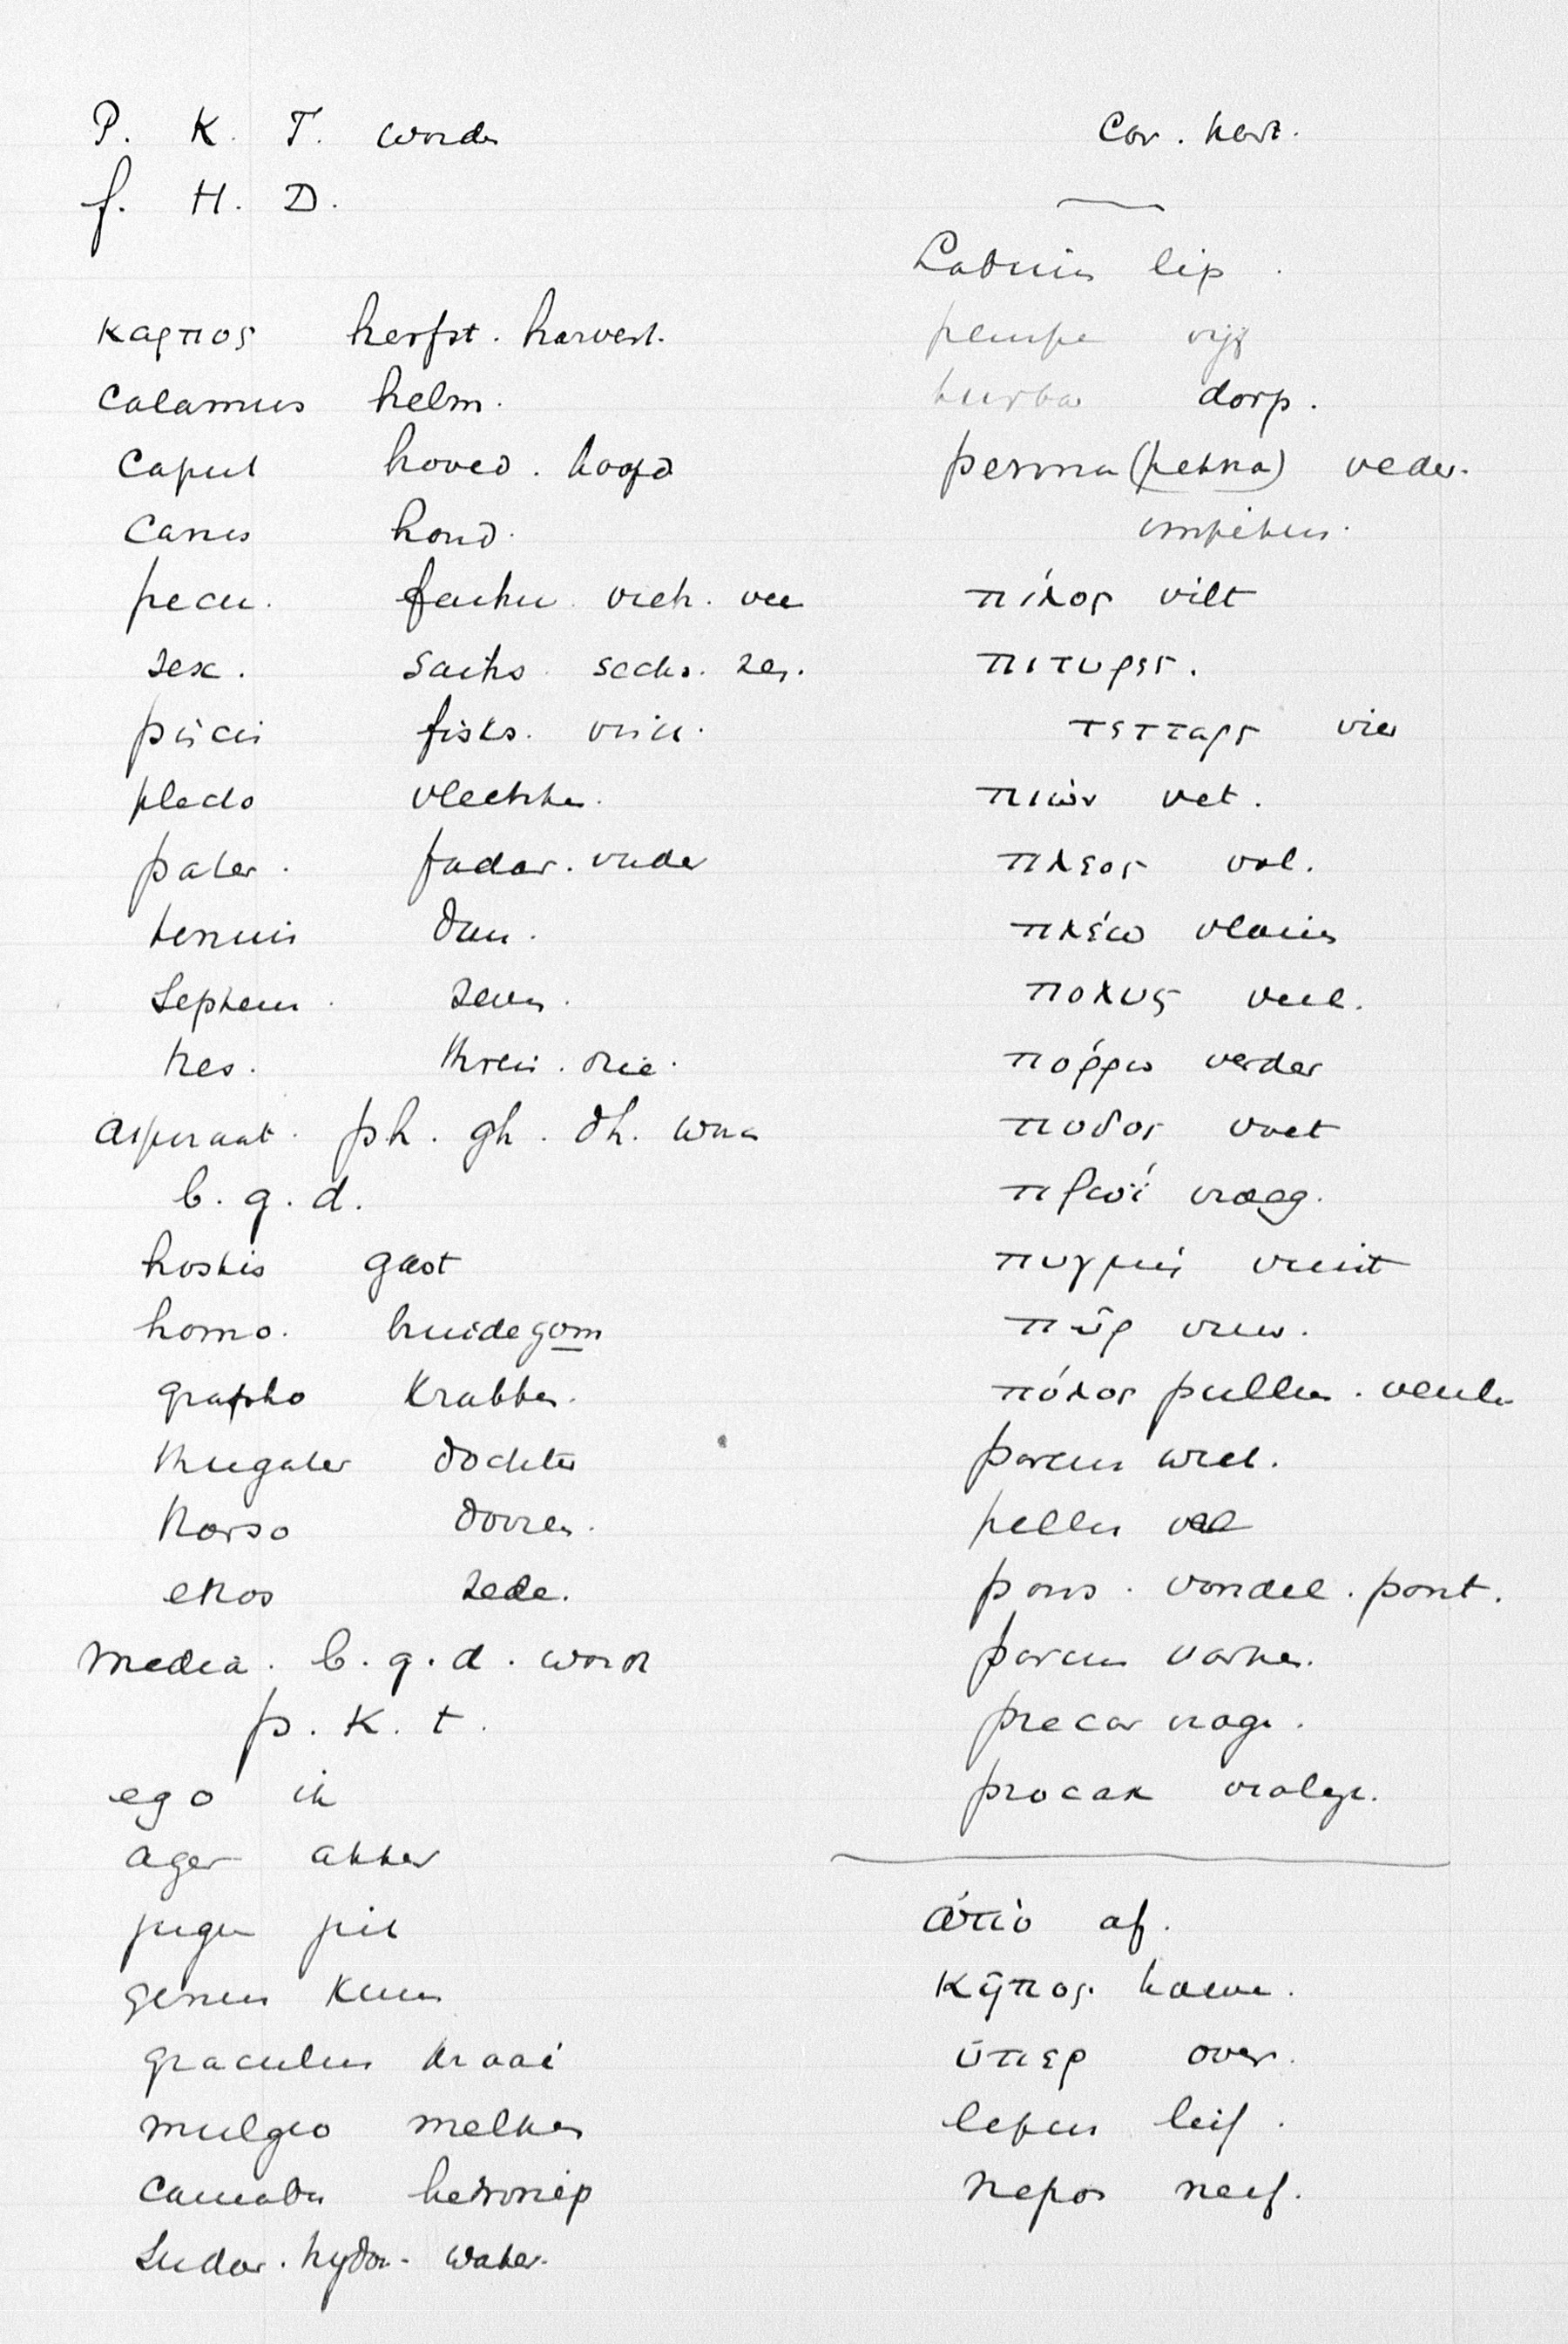 P. K. T. worden
f. H. D.
καρπος herfst. harvest.
Calamus helm.
Caput hoved. hoofd
Canis hond.
pecu. faihu. vieh. vee
sex. saihs. sechs. zes.
piscis fisks. visch.
plecto vlechten.
pater. fadar. vader
tenuis dun.
Septem. zeven.
tres. threis. drie.
aspiraat. ph. gh. dh. worden
b. g. d.
hostis gast
homo. bruidegom
grapho krabben.
thugater dochter
tharso dorren.
ethos zede.
Media. b. g. d. wordt
p. K. t.
ego ik
ager akker
genus kunne
graculus kraai
mulgeo melken
Cannabis hennep
Sudor. hydor. water.
Cor. hart.
Labium lip.
pempe vijf
turba dorp.
penna (petna) veder.
impetus.
πίλος vilt
πιτυρες.
τετταρε vier
πιών vet.
πλεος vol.
πλέω vlaien
πολυς veel.
πόρρω verder
ποδος voet
πρωί vroeg.
πυγμή vuist
πῦρ vuur.
πόλος pullus. veulen
pellis vel
pons. vondel. pont.
porcus varken.
precor vrage.
procax
ἀπὸ af.
κῆπος. hoeve.
ὑπερ over.
nepos neef.